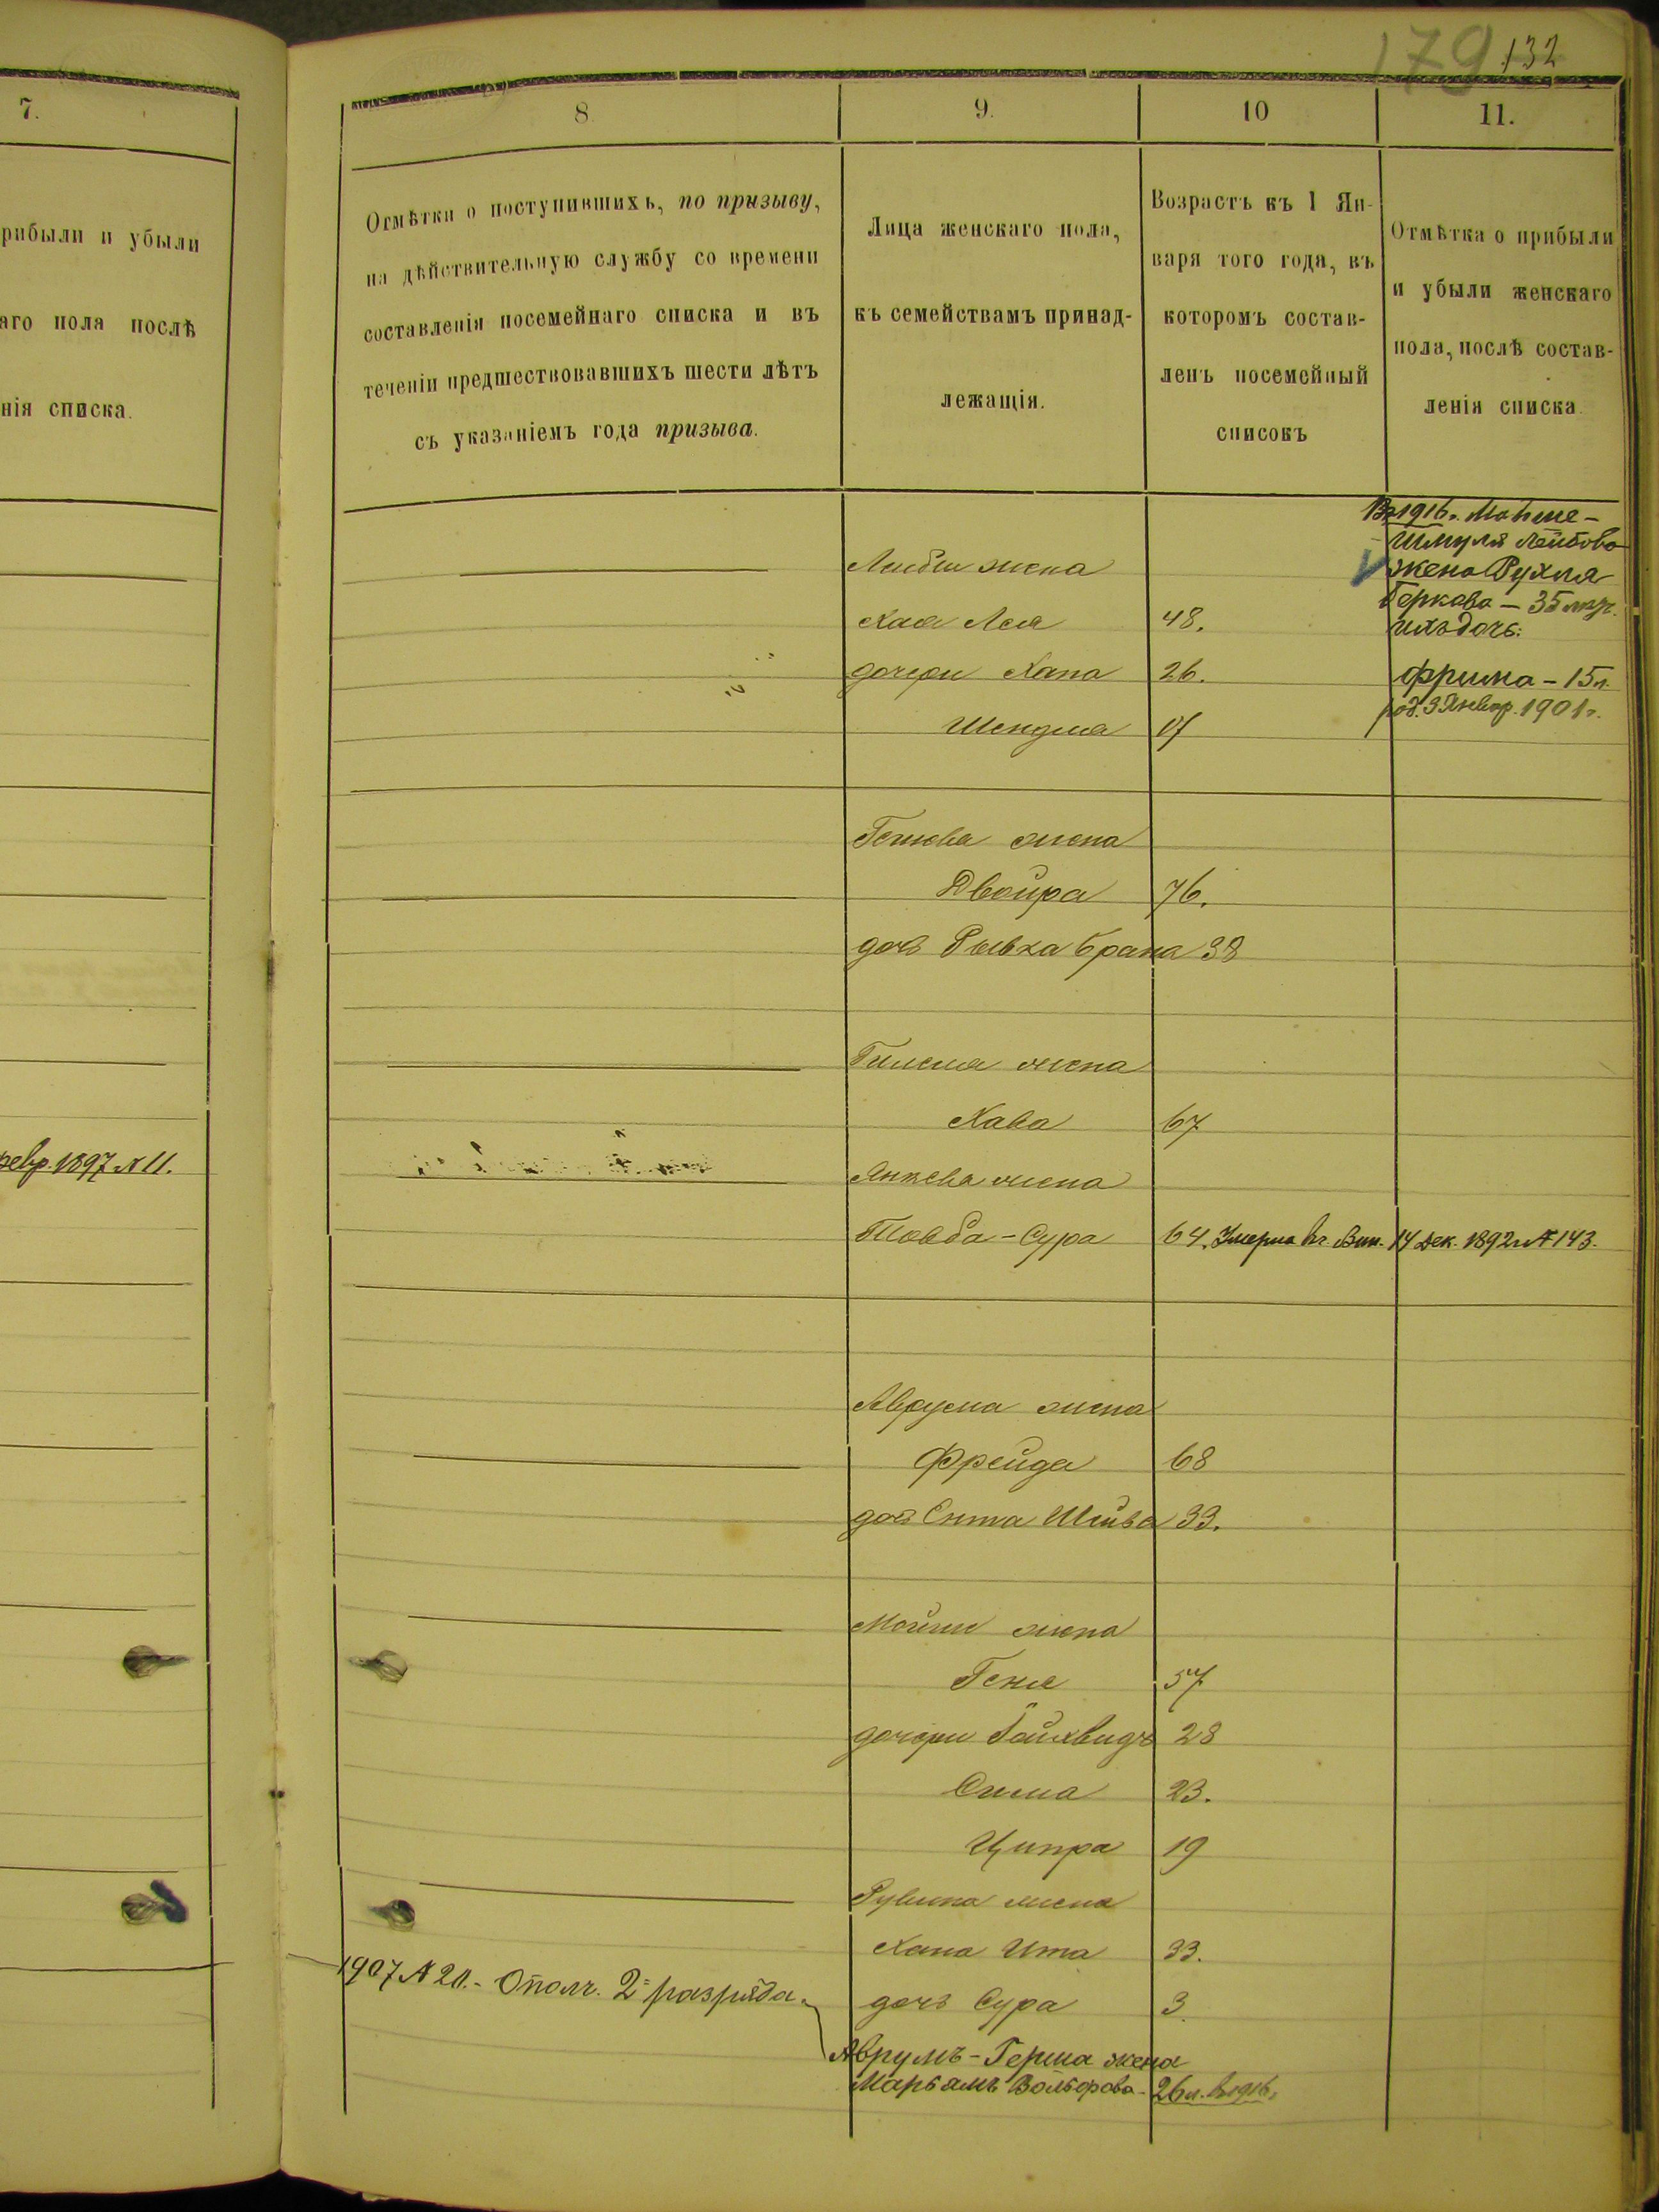 179 132
7.
рибыли и убыли
аго пола послѣ
нія списка.
евр. 1897 № 11.
8.
Отмѣтки о поступившихъ, по призыву,
на дѣйствительную службу со времени
составленія посемейнаго списка и въ
теченіи предшествовавшихъ шести лѣтъ
съ указаніемъ года призыва.
9.
Лица женскаго пола,
къ семействамъ принад-
лежащія.
10
Возрастъ къ 1 Ян-
варя того года, въ
которомъ состав-
ленъ посемейный
списокъ
11.
Отмѣтка о прибыли
и убыли женскаго
пола, послѣ состав-
ленія списка.
Въ 1916 г.
Шмуля Лейбова
жена Рухля
Беркова - 35 л.
ихъ дочь:
Фрима - 15 л.
род. 3 Январ. 1901 г.
Лейбы жена
Хая Лея 48.
дочери Хана 26.
Шендля 17
жена
Двойра 76.
дочь Рывка Брана 38
жена
Хава 67
Янкева жена
Товба-Сура 64. Умерла въ г. Вин. 14 Дек. 1892 г. № 143.
Аврума жена
Фрейда 68
дочь Ента Шейва 33.
Мойши жена
Геня 57
дочери 28
Сима 23.
Ципра 19
Рувина жена
Хана Ита 33.
дочь Сура 3.
1907 № 20. - Ополч. 2 разряда.
Аврумъ-Герша жена
Марьямъ Вольфова - 26 л. въ 1916 г.